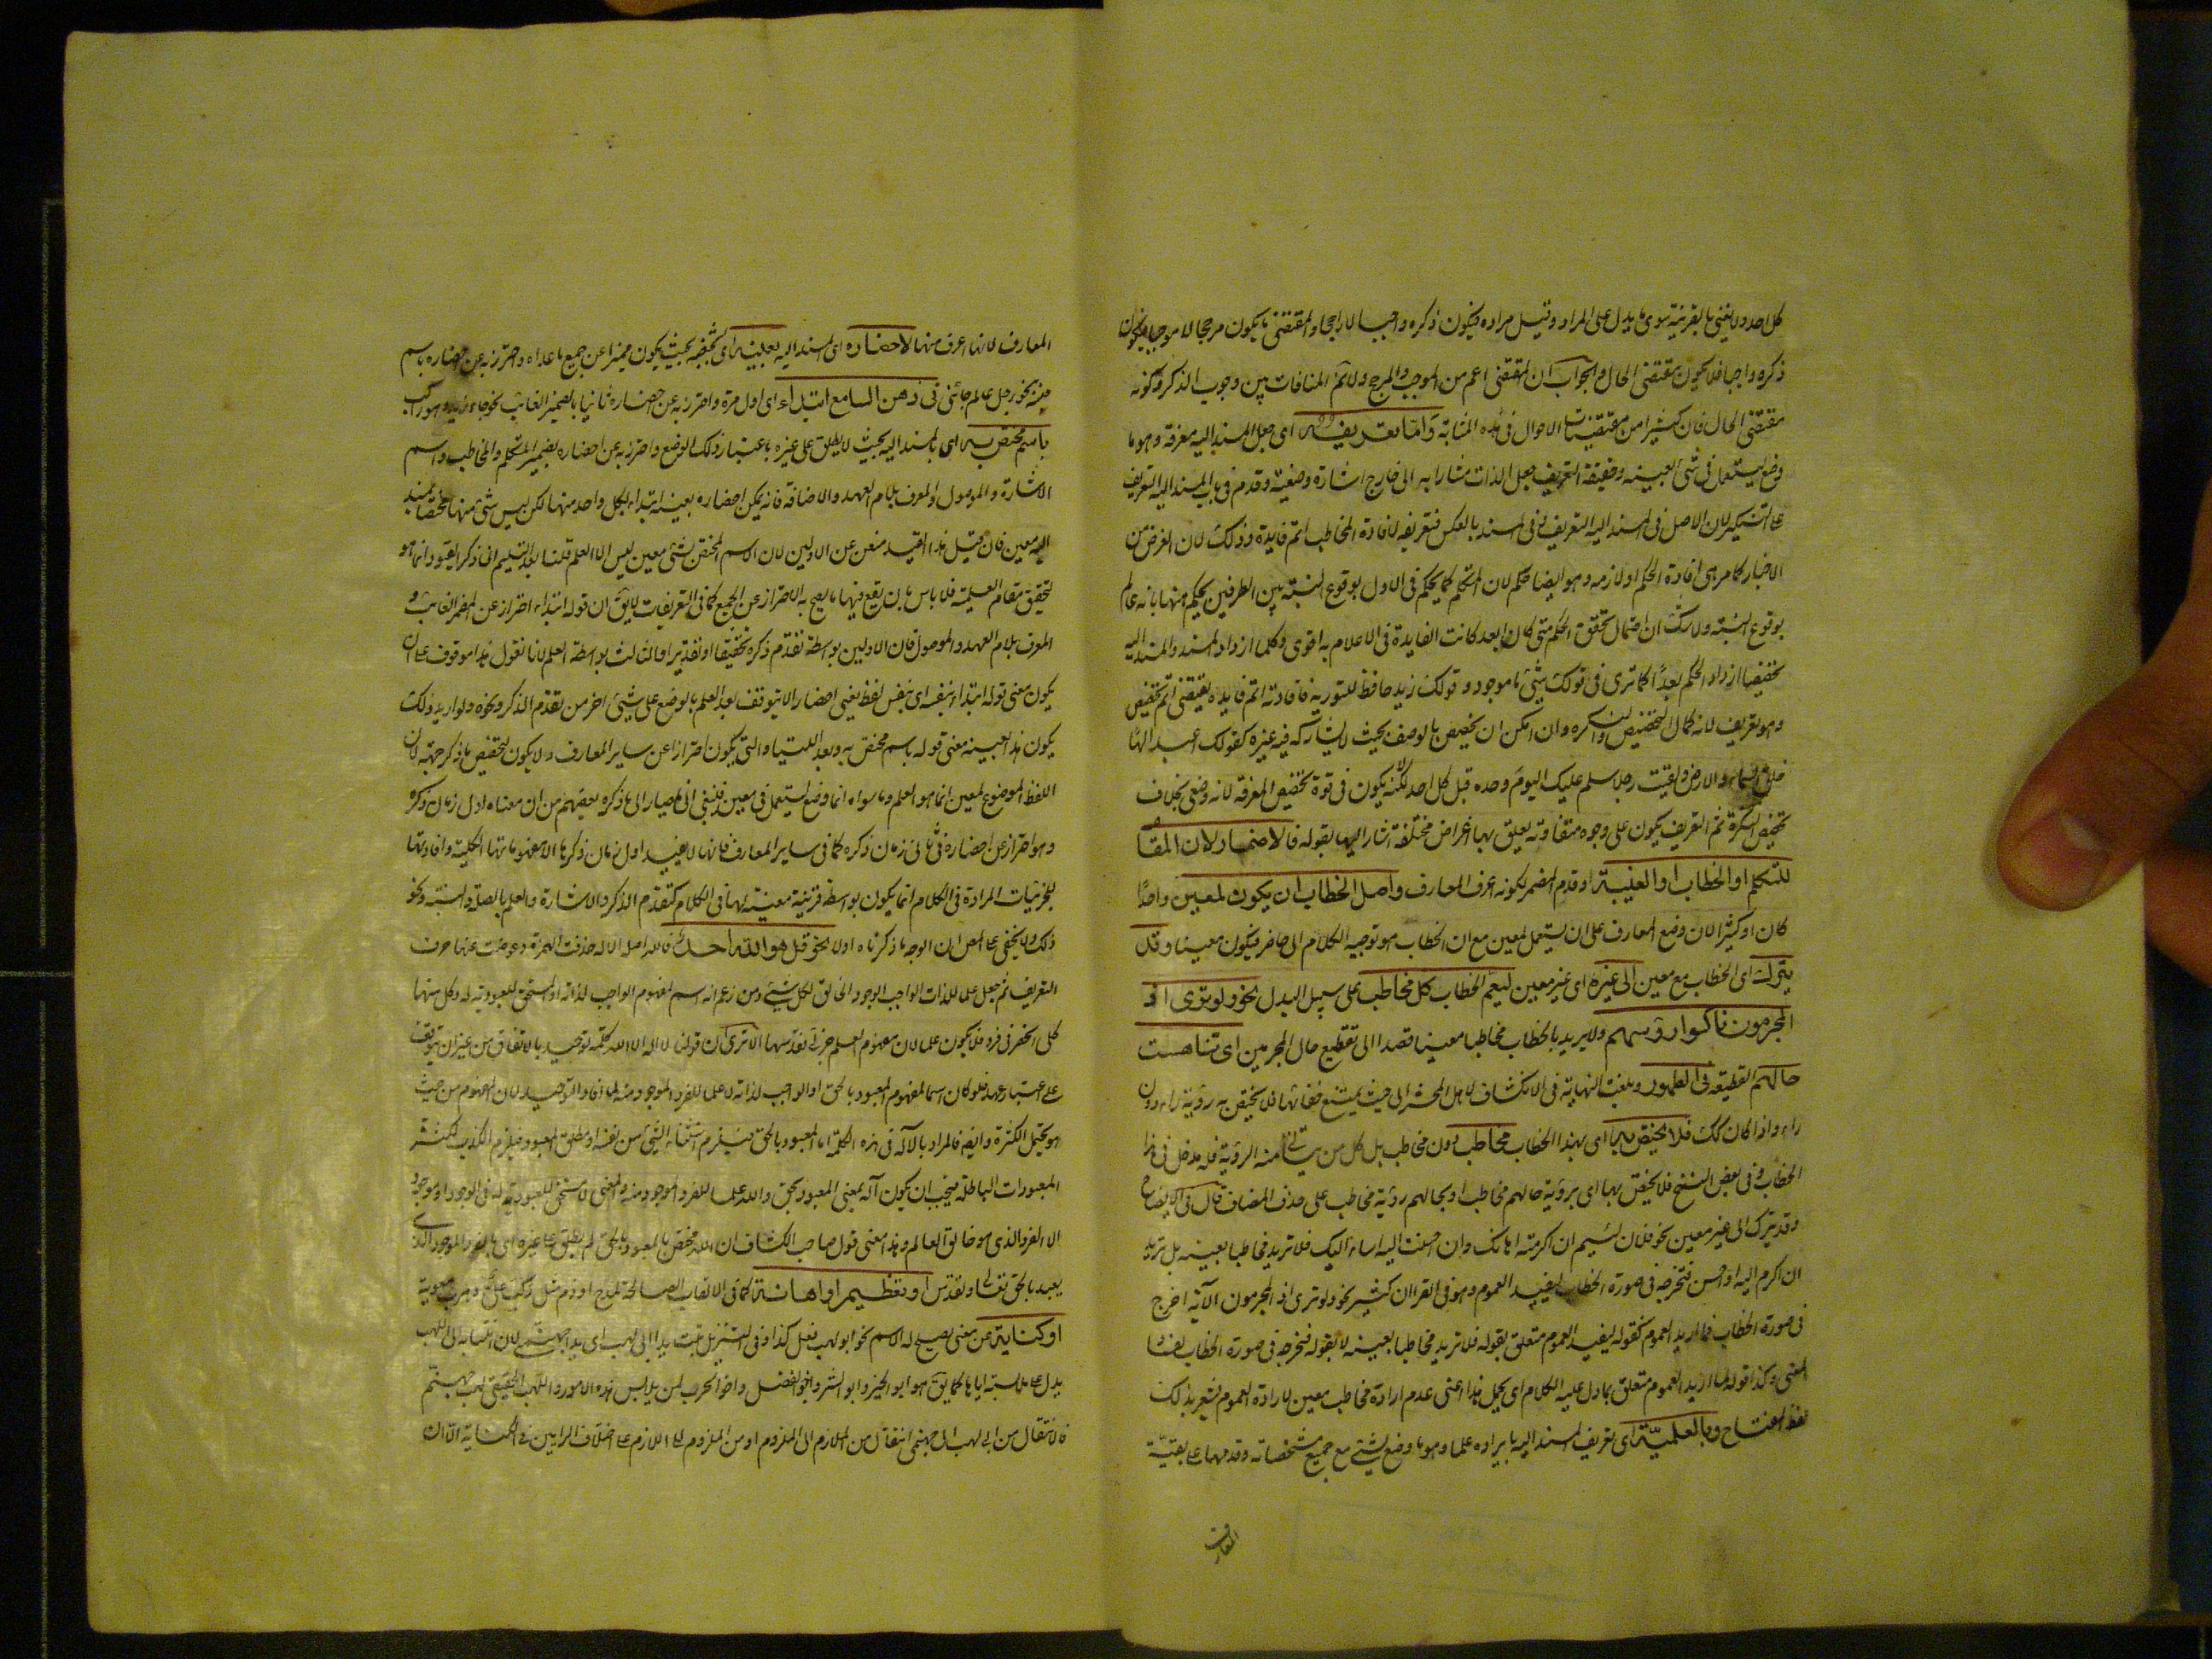 كل احد ولا يغنى بالقرينة سوى ما يدل على المراد وقيل مراده فيكون ذكره واجبا لا راجحا والمقتضى ما يكون مرجحا لا موجبا فيكون
ذكره واجبا فلا يكون مقتضى الحال والجواب ان المقتضى اعم من الموجب والمرجح ولا نم المنافات بين وجوب الذكر وكونه
مقتضى الحال فان كثيرا من مقتضيات الاحوال فى هذه المثابة واما تعريفه اى جعل المسند اليه معرفة وهو ما
وضع ليستعمل فى شئ بعينه وحقيقة التعريف جعل الذات مشارا به الى خارج اشارة وضعية وقدم فى باب المسند اليه التعريف
على التنكير لان الاصل فى المسند اليه التعريف وفى المسند بالعكس فتعريفه لافادة المخاطب اتم فايدة وذلك لان الغرض من
الاخبار كما مر هى افادة الحكم او لازمه وهو ايضا حكم لان المتكلم كما يحكم فى الاول بوقوع النسبة بين الطرفين يحكم منها بانه عالم
بوقوع النسبة ولا شك ان احتمال تحقق الحكم متى كان ابعد كانت الفايدة فى الاعلام به اقوى وكلما ازداد المسند والمسند اليه
تخصيصا ازداد الحكم بعدا كما ترى فى قولك شئ ما موجود وقولك زيد حافظ للتورية فافادته اتم فايده يقتضى اتم تخصيص
وهو تعريف لانه كمال التخصيص والنكره وان امكن ان يخصص بالوصف بحيث لا يشاركه فيه غيره كقولك اعبد الها
خلق السماء والارض ولقيت رجلا سلم عليك اليوم وحده قبل كل احد لكنه لا يكون فى قوة تخصيص المعرفة لانه وضعى بخلاف
تخصيص النكرة ثم التعريف يكون على وجوه متفاوته يتعلق بها اغراض مختلفة اشار اليها بقوله فالاضمار لان المقام
للتكلم او الخطاب او الغيبة وقدم المضمر لكونه اعرف المعارف واصل الخطاب ان يكون لمعين واحدا
كان او كثيرا لان وضع المعارف على ان يستعمل لمعين مع ان الخطاب هو توجيه الكلام الى حاضر فيكون معينا وقد
يترك اى الخطاب مع معين الى غيره اى غير معين ليعم الخطاب كل مخاطب على سبيل البدل نحو ولو ترى اذ
المجرمون ناكسوا رؤسهم ولا يريد بالخطاب مخاطبا معينا قصدا الى تقظيع حال المجرمين اى تناهت
حالهم الفظيعة فى الظهور وبلغت النهاية فى الانكشاف لاهل المحشر الى حيث يمتنع خفائها فلا يختص به رؤية راء دون
راء واذا كان كك فلا يختص به اى بهذا الخطاب مخاطب دون مخاطب بل كل من يتأتى منه الرؤية فله مدخل فى هذا
الخطاب وفى بعض النسخ فلا يختص بها اى برؤية حالهم مخاطب او بحالهم رؤية مخاطب على حذف المضاف قال فى الايضاح
وقد يترك الى غير معين نحو فلان لئيم ان اكرمته اهانك وان احسنت اليه اساء اليك فلا تريد مخاطبا بعينه بل تريد
ان اكرم اليه او احسن فتخرجه فى صورة الخطاب ليفيد العموم وهو فى القران كثير نحو ولو ترى اذ المجرمون الاية اخرج
فى صورة الخطاب لما اريد العموم كقوله ليفيد العموم متعلق بقوله فلا تريد مخاطبا بعينه لا بقوله فتخرجه فى صورة الخطاب لفساد
المعنى وكذا قوله لما اريد العموم متعلق بما دل عليه الكلام اى يحمل هذا اعنى عدم ارادة مخاطب معين لارادة العموم يشعر بذلك
لفظ المفتاح وبالعلمية اى تعريف المسند اليه بايراده علما وهو ما وضع لشئ مع جميع مشخصاته وقدمها على بقية
المعارف
المعارف لانها اعرف منها لاحضاره اى المسند اليه بعينه اى بشخصه بحيث يكون مميزا عن جميع ما عداه واحترز به عن احضاره باسم
جنسه نحو رجل عالم جائنى فى ذهن السامع ابتداء اى اول مرة واحترز به عن احضاره ثانيا بالضمير الغائب نحو جاء زيد وهو راكب
باسم مختص به اى بالمسند اليه بحيث لا يطلق على غيره باعتبار ذلك الوضع واحترز به عن احضاره بضمير المتكلم والمخاطب واسم
الاشارة والموصول والمعرف بلام العهد والاضافة فانه يمكن احضاره بعينه ابتداء بكل واحد منها لكن ليس شئ منها مختصا بمسند
اليه معين فان قيل هذا القيد مغن عن الاولين لان الاسم المختص بشئ معين ليس الا العلم قلنا بعد التسليم ان ذكر القيود انما هو
لتحقيق مقام العلمية فلا باس بان يقع فيها ما يصح به الاحتراز عن الجميع كما فى التعريفات لا يق ان قوله ابتداء احتراز عن المضمر الغائب و
المعرف بلام العهد والموصول فان الاولين بواسطة تقدم ذكره تحقيقا او تقديرا والثالث بواسطة العلم لانا نقول هذا موقوف على ان
يكون معنى قوله ابتداء بنفسه اى بنفس لفظ يعنى احضارا لا يتوقف بعد العلم بالوضع على شئ اخر من تقدم الذكر ونحوه ولو اريد ذلك
يكون هذا بعينه معنى قوله باسم مختص به وبعد اللتيا والتى يكون احترازا عن ساير المعارف ولا يكون لتخصيص ما ذكر جهة لان
اللفظ الموضوع لمعين انما هو العلم وما سواه انما وضع ليستعمل فى معين فلينبغى ان لا يصار الى ما ذكره بعضهم من ان معناه اول زمان ذكره
وهو احتراز عن احضاره فى ثانى زمان ذكره كما فى ساير المعارف فانها لا تفيد اول زمان ذكرها الا مفهوماتها الكلية وافادتها
للجزئيات المرادة فى الكلام انما يكون بواسطة قرينة معينة لها فى الكلام كتقدم الذكر والاشارة والعلم بالصلة والنسبة ونحو
ذلك ولا يخفى على المنصف ان الوجه ما ذكرناه اولا نحو قل هو الله احد فالله اصله الاله حذفت الهمزة وعوضت عنها حرف
التعريف ثم جعل علما للذات الواجب الوجود الخالق لكل شئ ومن زعم انه اسم لمفهوم الواجب لذاته او المستحق للعبودية له وكل منها
كلى انحصر فى فرد فلا يكون علما لان مفهوم العلم جزئى فقد سها الا ترى ان قولنا لا اله الا الله كلمة توحيد بالاتفاق من غير ان يتوقف
على اعتبار عهد فلو كان اسما لمفهوم المعبود بالحق او الواجب لذاته لا علما للفرد الموجود منه لما افاد التوحيد لان المفهوم من حيث
هو يحتمل الكثرة وايضا فالمراد بالاله فى هذه الكلمة اما المعبود بالحق فيلزم استثناء الشئ من نفسه او مطلق المعبود فيلزم الكذب لكثرة
المعبودات الباطلة فيجب ان يكون اله بمعنى المعبود بحق والله علما للفرد الموجود منه والمعنى لا مستحق للعبودية له فى الوجود او موجود
الا الفرد الذى هو خالق العالم وهذا معنى قول صاحب الكشاف ان الله مختص بالمعبود بالحق لم يطلق على غيره اى بالفرد الموجود الذى
يعبد بالحق تعالى وتقدس او تعظيم او اهانة كما فى الالقاب الصالحة لمدح او ذم مثل ركب على وهرب معوية
او كناية عن معنى يصلح له الاسم نحو ابو لهب فعل كذا وفى التنزيل تبت يدا ابى لهب اى يدا جهنمى لان انتسابه الى اللهب
يدل على ملابسته اياها كما يق هو ابو الخير وابو الشر واخو الفضل واخو الحرب لمن يلابس هذه الامور واللهب الحقيقى لهب جهنم
فالانتقال من ابى لهب الى جهنمى انتقال من الملازم الى الملزوم او من الملزوم الى اللازم على اختلاف الرايين فى الكناية الا ان